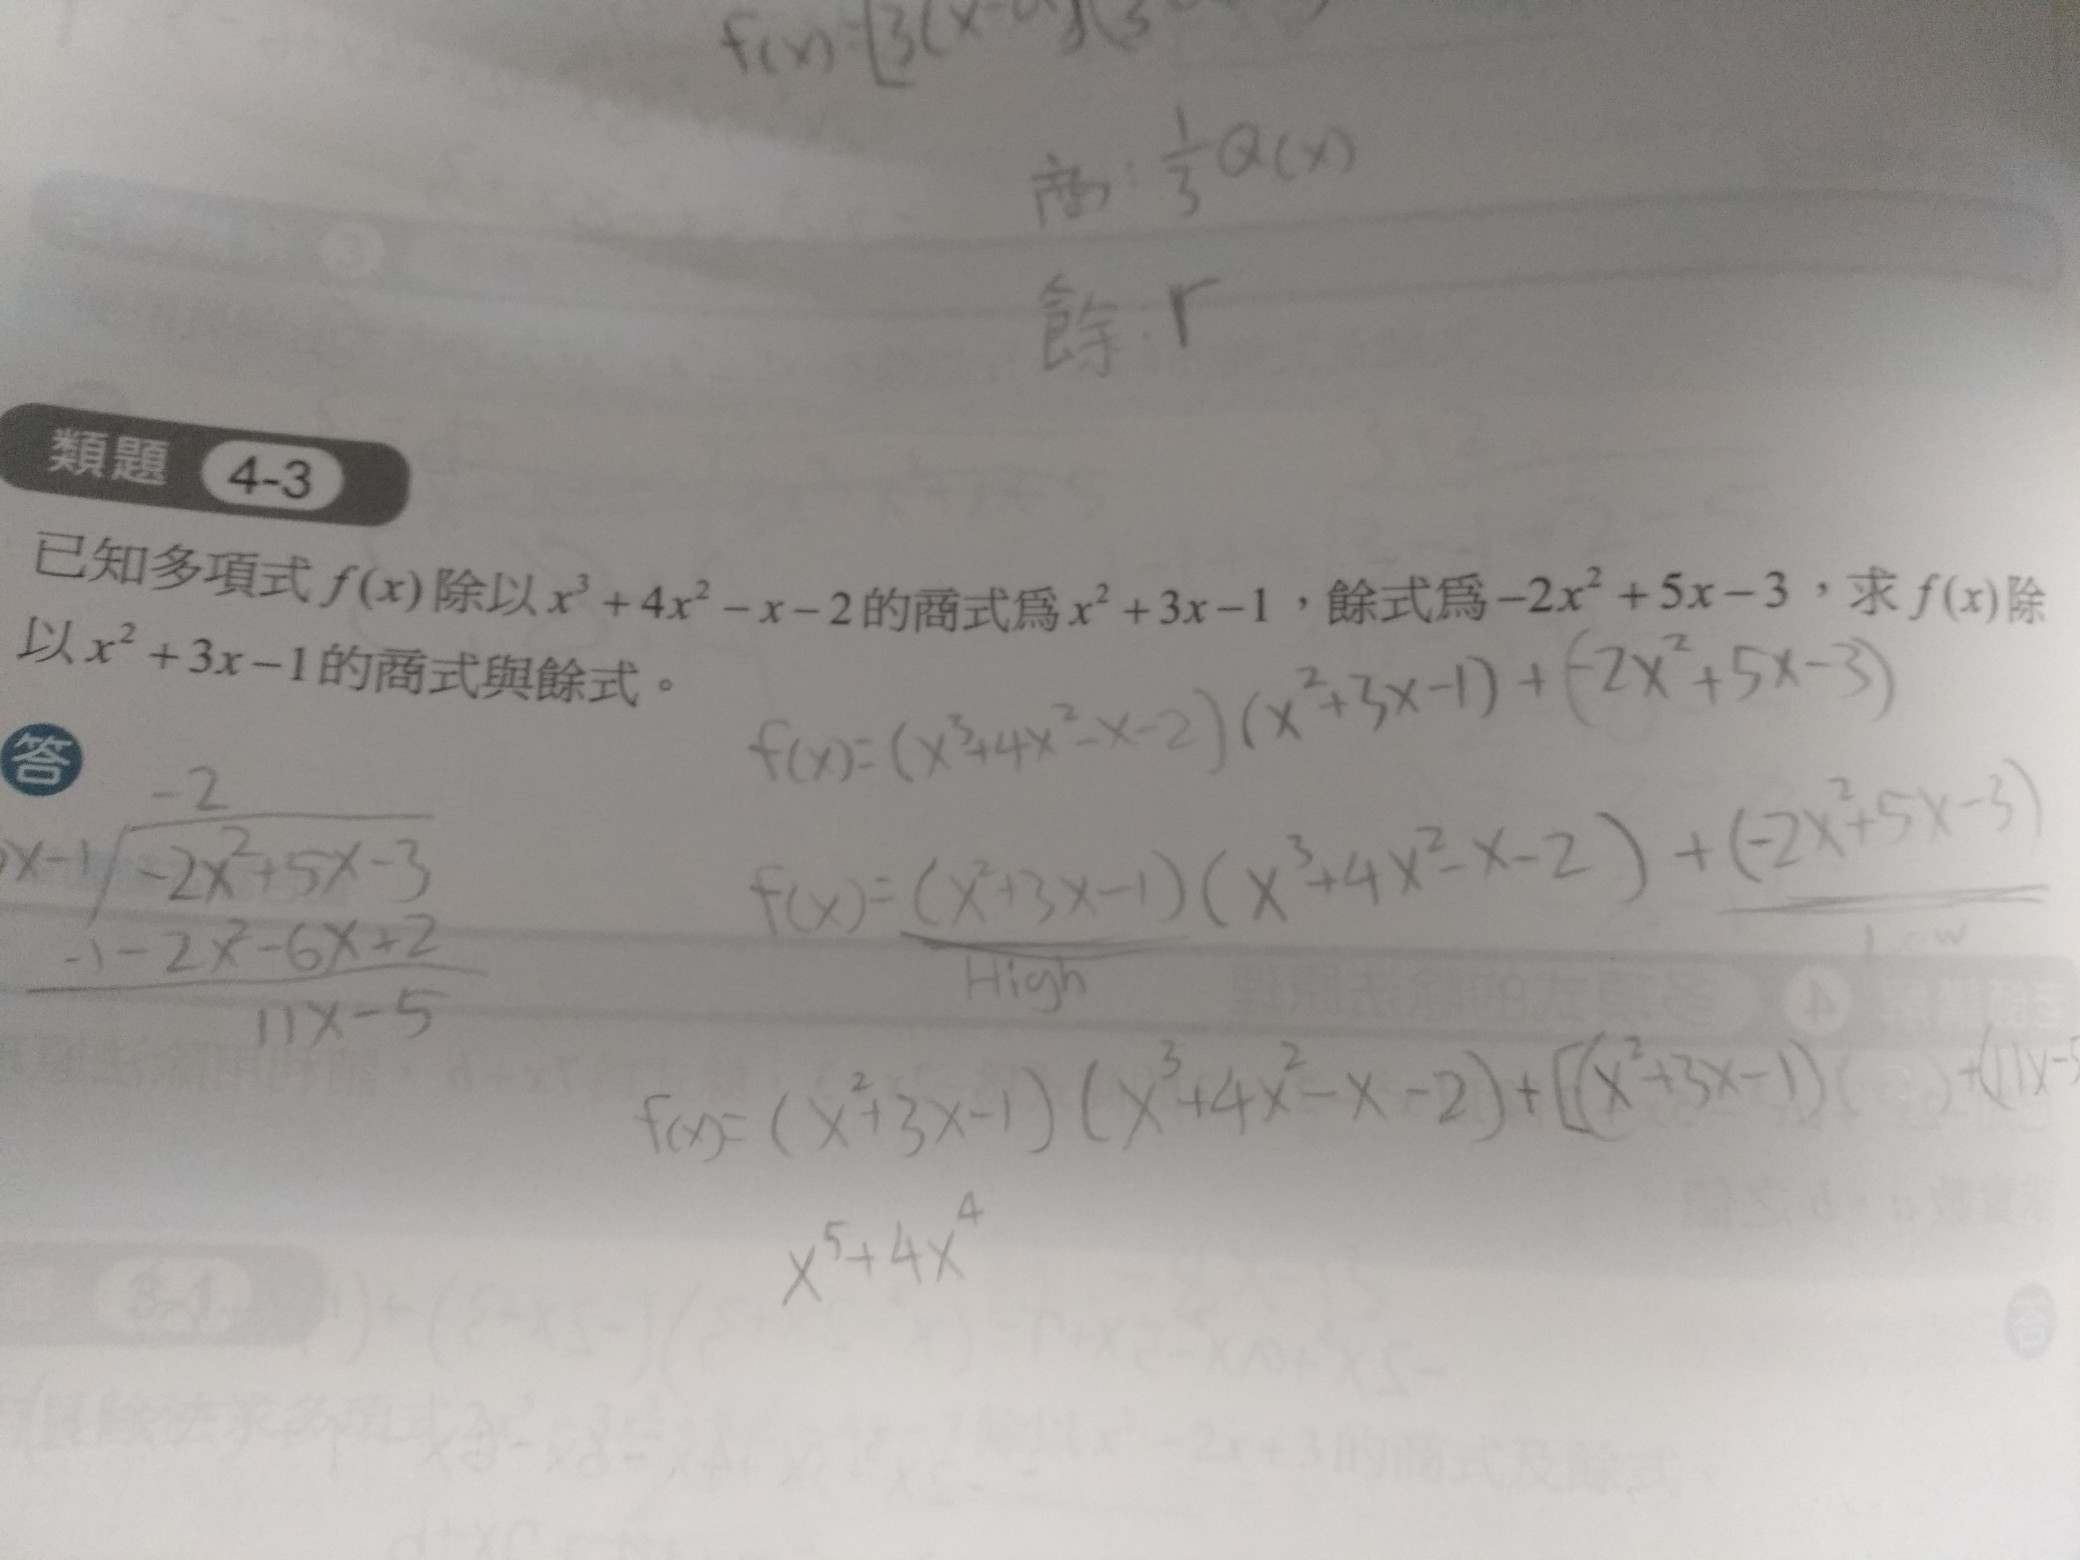 f(x)=[3(x-
商: 1/3 Q(x)
餘: r
類題 4-3
已知多項式 f(x) 除以 x³+4x²−x−2 的商式為 x²+3x−1，餘式為 −2x²+5x−3，求 f(x) 除
以 x²+3x−1 的商式與餘式。
f(x)=(x³+4x²-x-2)(x²+3x-1)+(-2x²+5x-3)
答
-2
x-1 -2x²+5x-3
f(x)=(x²+3x-1)(x³+4x²-x-2)+(-2x²+5x-3)
-) -2x²-6x+2
High Low
11x-5
f(x)=(x²+3x-1)(x³+4x²-x-2)+[(x²+3x-1)( )+(11x-5
x⁵+4x⁴